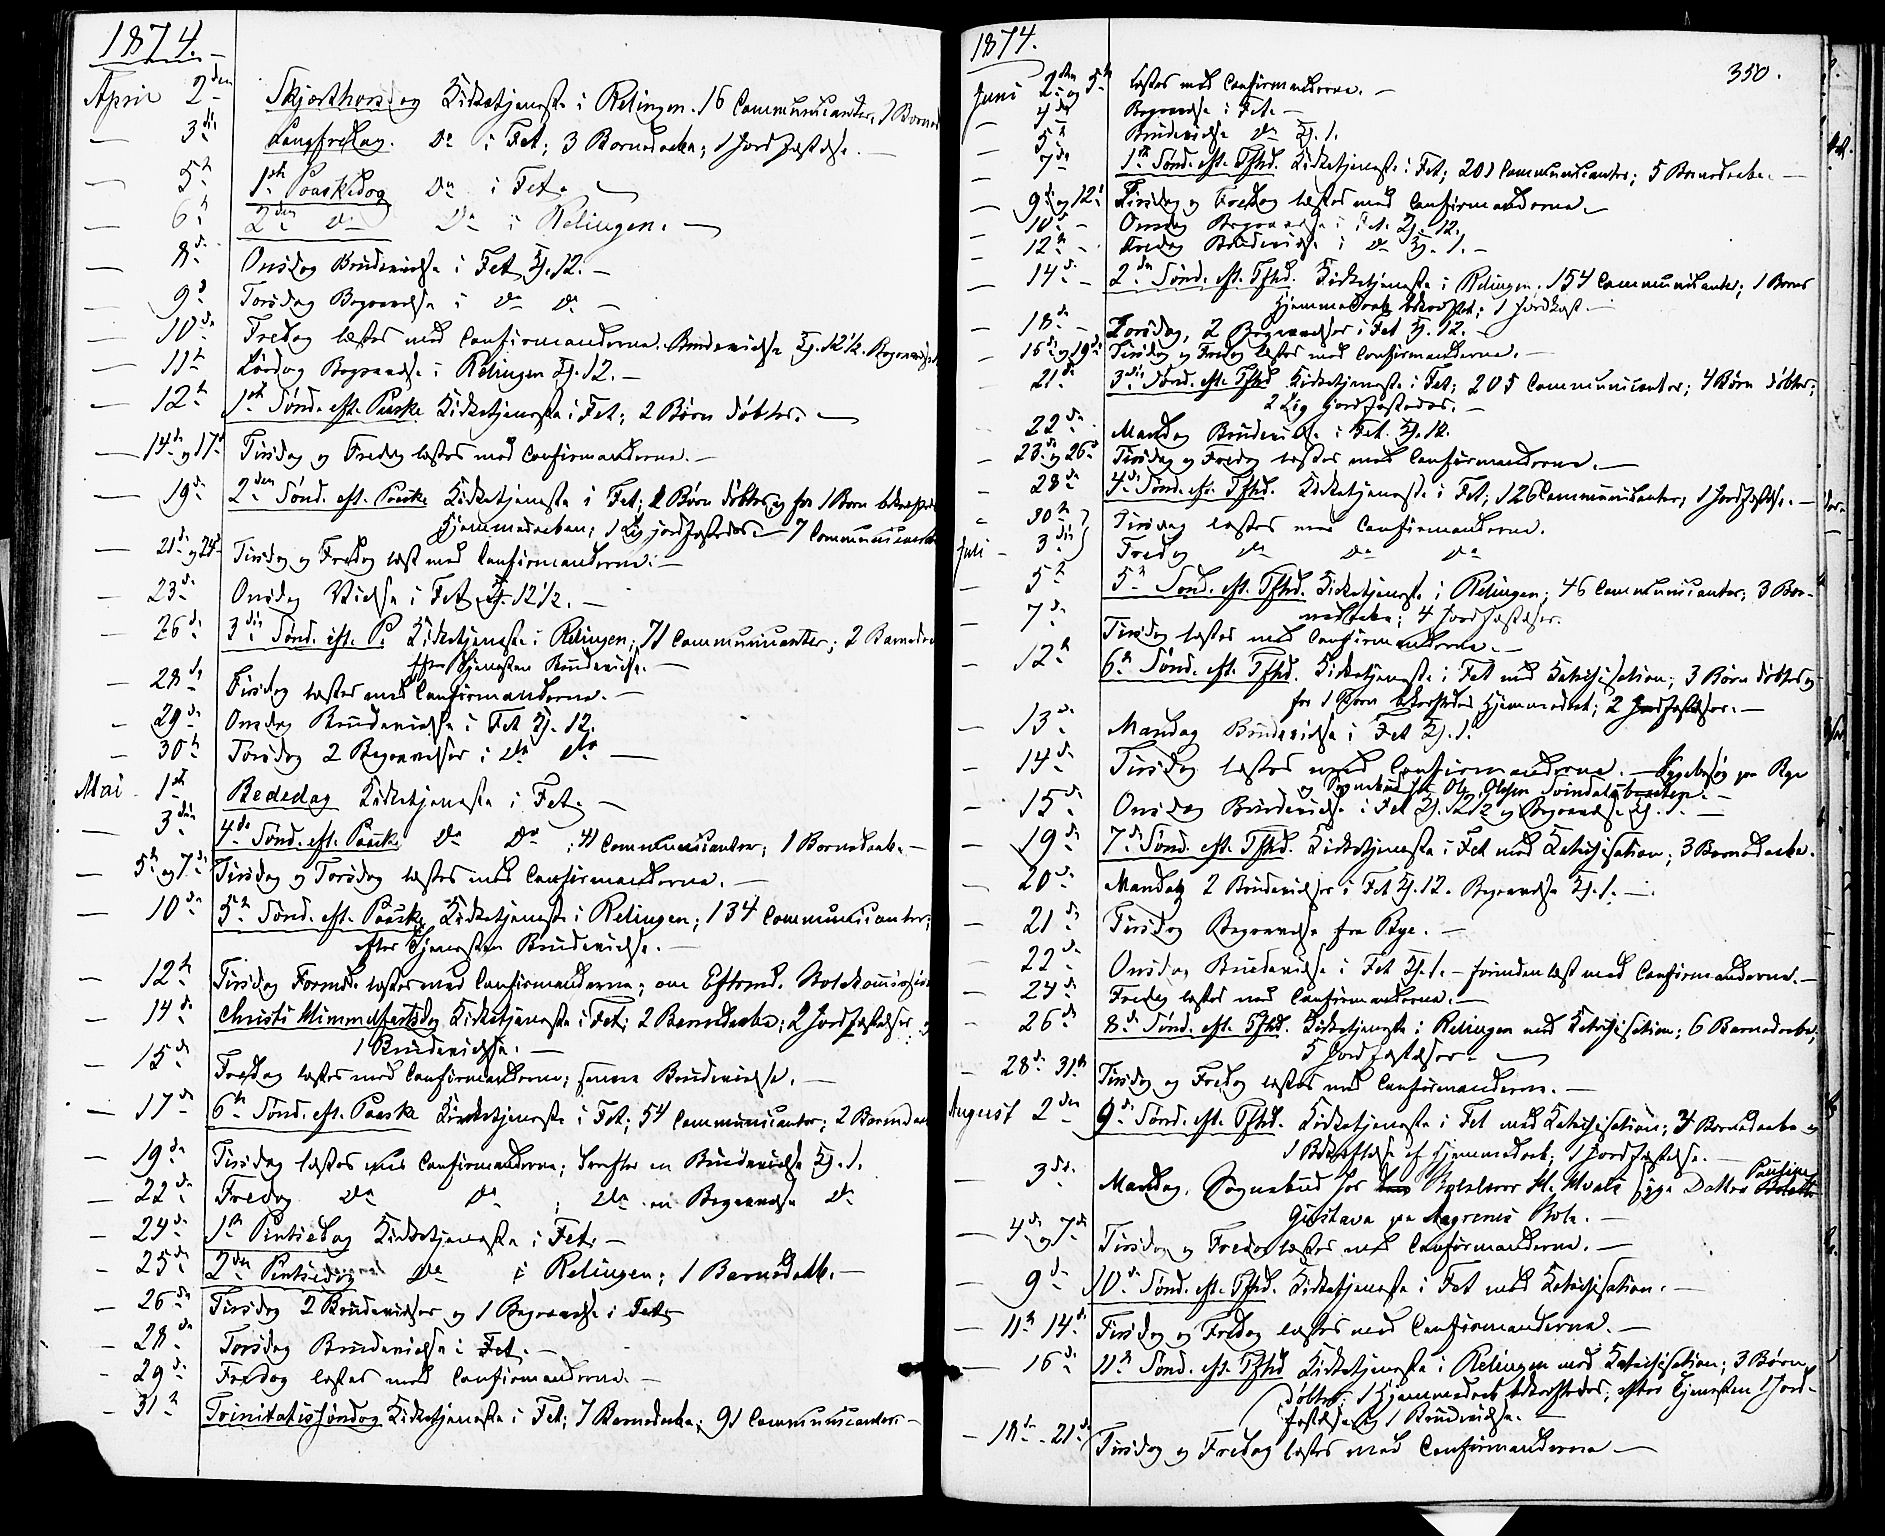 1874.
April 2den Skjærthorsdag Kirketjeneste i Relingen. 16 Communicanter, 1 Barned
— 3die Langfredag. Do i Fet; 3 Barnedaabe; 1 Jordfæstelse. —
— 5te 1ste Paaskedag Do i Fet. —
— 6te 2den Do Do i Relingen. —
— 8de Onsdag Brudevielse i Fet Kl. 12. —
— 9de Torsdag Begravelse i do do —
— 10de Fredag læstes med Confirmanderne. Brudevielse Kl. 12½. Begravelse
— 11te Lørdag Begravelse i Relingen Kl. 12. —
— 12te 1ste Sønd. eft. Paaske Kirketjeneste i Fet; 2 Børn døbtes. —
— 14de og 17de Tirsdag og Fredag læstes med Confirmanderne. —
— 19de 2den Sønd. eft. Paaske Kirketjeneste i Fet; 2 Børn døbtes og for 1 Barn bekræftedes
Hjemmedaaben; 1 Lig jordfæstedes — 7 Communicanter
— 21de og 24de Tirsdag og Fredag læst med Confirmanderne. —
— 23de Onsdag Vielse i Fet Kl. 12½. —
— 26de 3die Sønd. eft. P. Kirketjeneste i Relingen; 71 Communicanter; 2 Barnedaabe
efter Tjenesten Brudevielse. —
— 28de Tirsdag læstes med Confirmanderne. —
— 29de Onsdag Brudevielse i Fet Kl. 12.
— 30te Torsdag 2 Begravelser i do do —
Mai 1ste Bededag Kirketjeneste i Fet. —
— 3die 4de Sønd. eft. Paaske Do Do; 41 Communicanter; 1 Barnedaab. —
— 5te og 7de Tirsdag og Torsdag læstes med Confirmanderne. —
— 10de 5te Sønd. eft. Paaske Kirketjeneste i Relingen; 134 Communicanter;
efter Tjenesten Brudevielse. —
— 12te Tirsdag Formd. læstes med Confirmanderne; om Eftermd. Skolekomission
— 14de Christi Himmelfartsdag Kirketjeneste i Fet; 2 Barnedaabe; 2 Jordfæstelser og
1 Brudevielse. —
— 15de Fredag læstes med Confirmanderne; senere Brudevielse. —
— 17de 6te Sønd. eft. Paaske Kirketjeneste i Fet; 54 Communicanter; 2 Barnedaabe
— 19de Tirsdag læstes med Confirmanderne; derefter en Brudevielse Kl. 1.
— 22de Fredag do do; do en Begravelse do
— 24de 1ste Pintsedag Kirketjeneste i Fet. —
— 25de 2den Pintsedag Do i Relingen; 1 Barnedaab. —
— 26de Tirsdag 2 Brudevielser og 1 Begravelse i Fet. —
— 28de Torsdag Brudevielse i Fet. —
— 29de Fredag læstes med Confirmanderne. —
— 31te Trinitatissøndag Kirketjeneste i Fet; 7 Barnedaabe; 91 Communicanter —
1874. 350.
Juni 2den og 5te læstes med Confirmanderne. —
— 4de Begravelse i Fet. —
— 5te Brudevielse do Kl. 1.
— 7de 1ste Sønd. eft. Tfhd. Kirketjeneste i Fet; 201 Communicanter; 5 Barnedaabe. —
— 9de og 12te Tirsdag og Fredag læstes med Confirmanderne. —
— 10de — Onsdag Begravelse i Fet. Kl. 12.
— 12te — Fredag Brudevielse i do Kl. 1. —
— 14de — 2den Sønd. eft. Tfhd. Kirketjeneste i Relingen. 154 Communicanter; 1 Barns
Hjemmedaab bekræftet; 1 Jordfæst. —
— 18de — Torsdag, 2 Begravelser i Fet Kl. 12. —
— 16de og 19de Tirsdag og Fredag læstes med Confirmanderne. —
— 21de 3die Sønd. eft. Tfhd Kirketjeneste i Fet; 205 Communicanter; 4 Børn døbtes;
2 Lig jordfæstedes. —
22de Mandag Brudevielse i Fet. Kl. 12.
— 23de og 26de Tirsdag og Fredag læstes med Confirmanderne. —
— 28de 4de Sønd. eft. Tfhd. Kirketjeneste i Fet; 126 Communicanter; 1 Jordfæstelse. —
— 30te Tirsdag læstes med Confirmanderne.
Juli — 3die Fredag do do do
— 5te 5te Sønd. eft. Tfhd. Kirketjeneste i Relingen; 46 Communicanter; 3 Bar-
nedaabe; 4 Jordfæstelser.
— 7de Tirsdag læstes med Confirmanderne. —
— 12te 6te Sønd. eft. Tfhd. Kirketjeneste i Fet med Katechisation; 3 Børn døbtes og
for 1 Barn bekræftedes Hjemmedaab; 2 Jordfæstelser. —
— 13de Mandag Brudevielse i Fet Kl. 1.
— 14de Tirsdag læstes med Confirmanderne. — Sygebesøg paa Rye
og Sognebud hos Ole Olssen Svindalsbraaten. —
— 15de Onsdag Brudevielse i Fet Kl. 12½ og Begravelse Kl. 1. —
— 19de 7de Sønd. eft. Tfhd. Kirketjeneste i Fet med Katechisation; 3 Barnedaabe.
— 20de Mandag 2 Brudevielser i Fet Kl. 12. Begravelse Kl. 1. —
— 21de Tirsdag Begravelse fra Rye. —
— 22de Onsdag Brudevielse i Fet Kl. 1. — forinden læst med Confirmanderne. —
— 24de Fredag læstes med Confirmanderne. —
— 26de 8de Sønd. eft. Tfhd. Kirketjeneste i Relingen med Katechisation; 6 Barnedaabe;
5 Jordfæstelser. —
— 28de 31te Tirsdag og Fredag læstes med Confirmanderne. —
August 2den 9de Sønd. eft. Tfhd. Kirketjeneste i Fet med Katechisation; 4 Barnedaabe og
1 Bekræftelse af Hjemmedaab; 1 Jordfæstelse. —
— 3die Mandag. Sognebud hos syge Datter Pauline
Gustava paa
— 4de og 7de Tirsdag og Fredag læstes med Confirmanderne. —
— 9de 10de Sønd. eft. Tfhd. Kirketjeneste i Fet med Katechisation. —
— 11te 14de Tirsdag og Fredag læstes med Confirmanderne. —
— 16de 11te Sønd. eft. Tfhd Kirketjeneste i Relingen med Katechisation; 3 Børn
døbtes; 1 Hjemmedaab bekræftedes; efter Tjenesten 1 Jord-
fæstelse og 1 Brudevielse. —
— 18de - 21de Tirsdag og Fredag læstes med Confirmanderne —